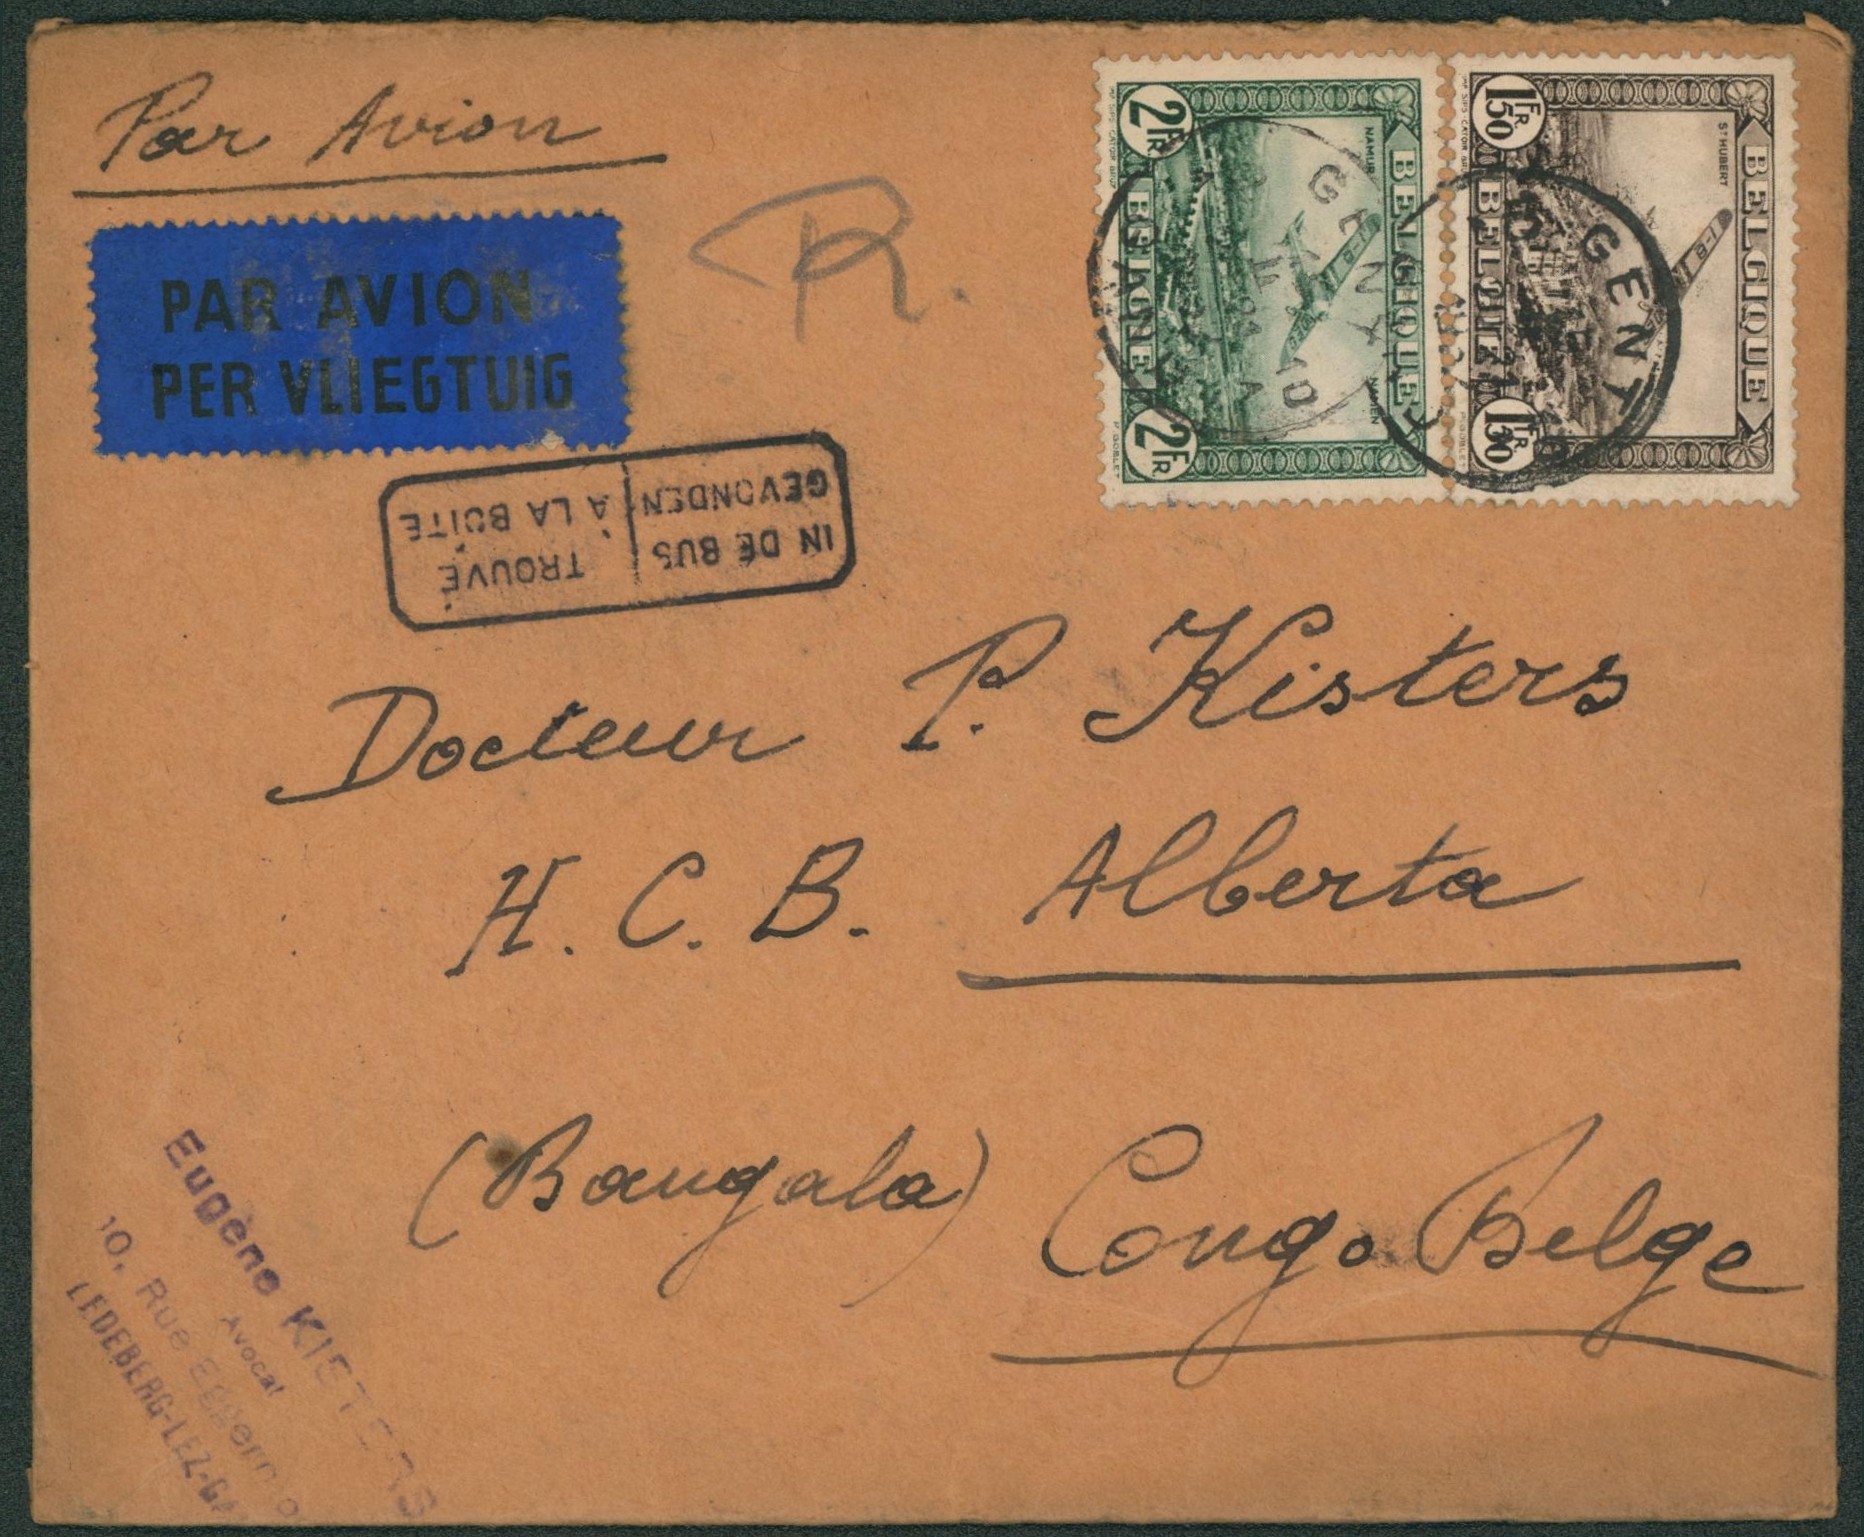 Par Avion
PAR AVION
PER VLIEGTUIG
R.
2 FR
BELGIQUE
BELGIË
NAMUR
NAMEN
2 FR
1 FR 50
BELGIQUE
BELGIË
ST HUBERT
1 FR 50
GENT
GENT
IN DE BUS
GEVONDEN
TROUVÉ
À LA BOITE
Docteur P. Kisters
H. C. B. Alberta
(Bangala) Congo Belge
Eugène
Avocat
10, Rue
LEDEBERG-LEZ-